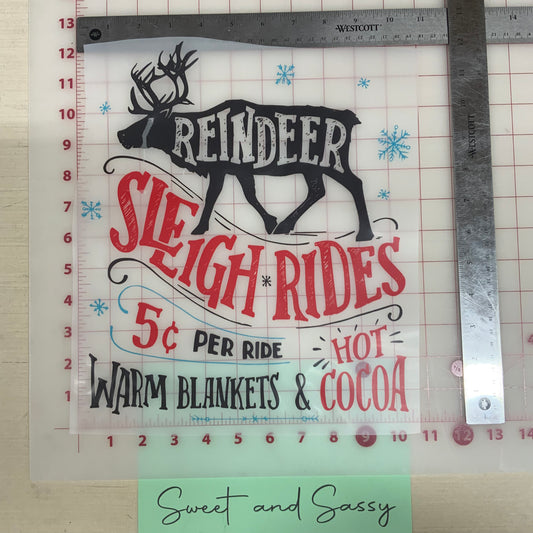 13
12
11
10
9
8
7
6
5
4
3
2
1
WESTCOTT
WESTCOTT
REINDEER
SLEIGH * RIDES
5¢ PER RIDE
HOT
WARM BLANKETS & COCOA
1 2 3 4 5 6 7 8 9 10 11 12 13 14
Sweet and Sassy